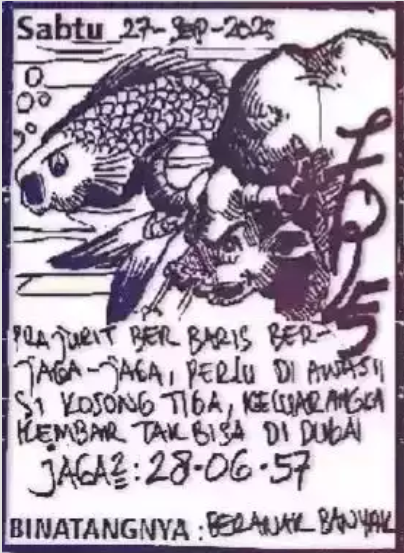 Sabtu 27-Sep-2025
PRAJURIT BER BARIS BER-
JAGA-JAGA, PERLU DI AWASI
SI KOSONG TIGA, KELUAR ANGKA
KEMBAR TAK BISA DI DUGAI
JAGA2 : 28-06-57
BINATANGNYA : BERANAK BANYAK